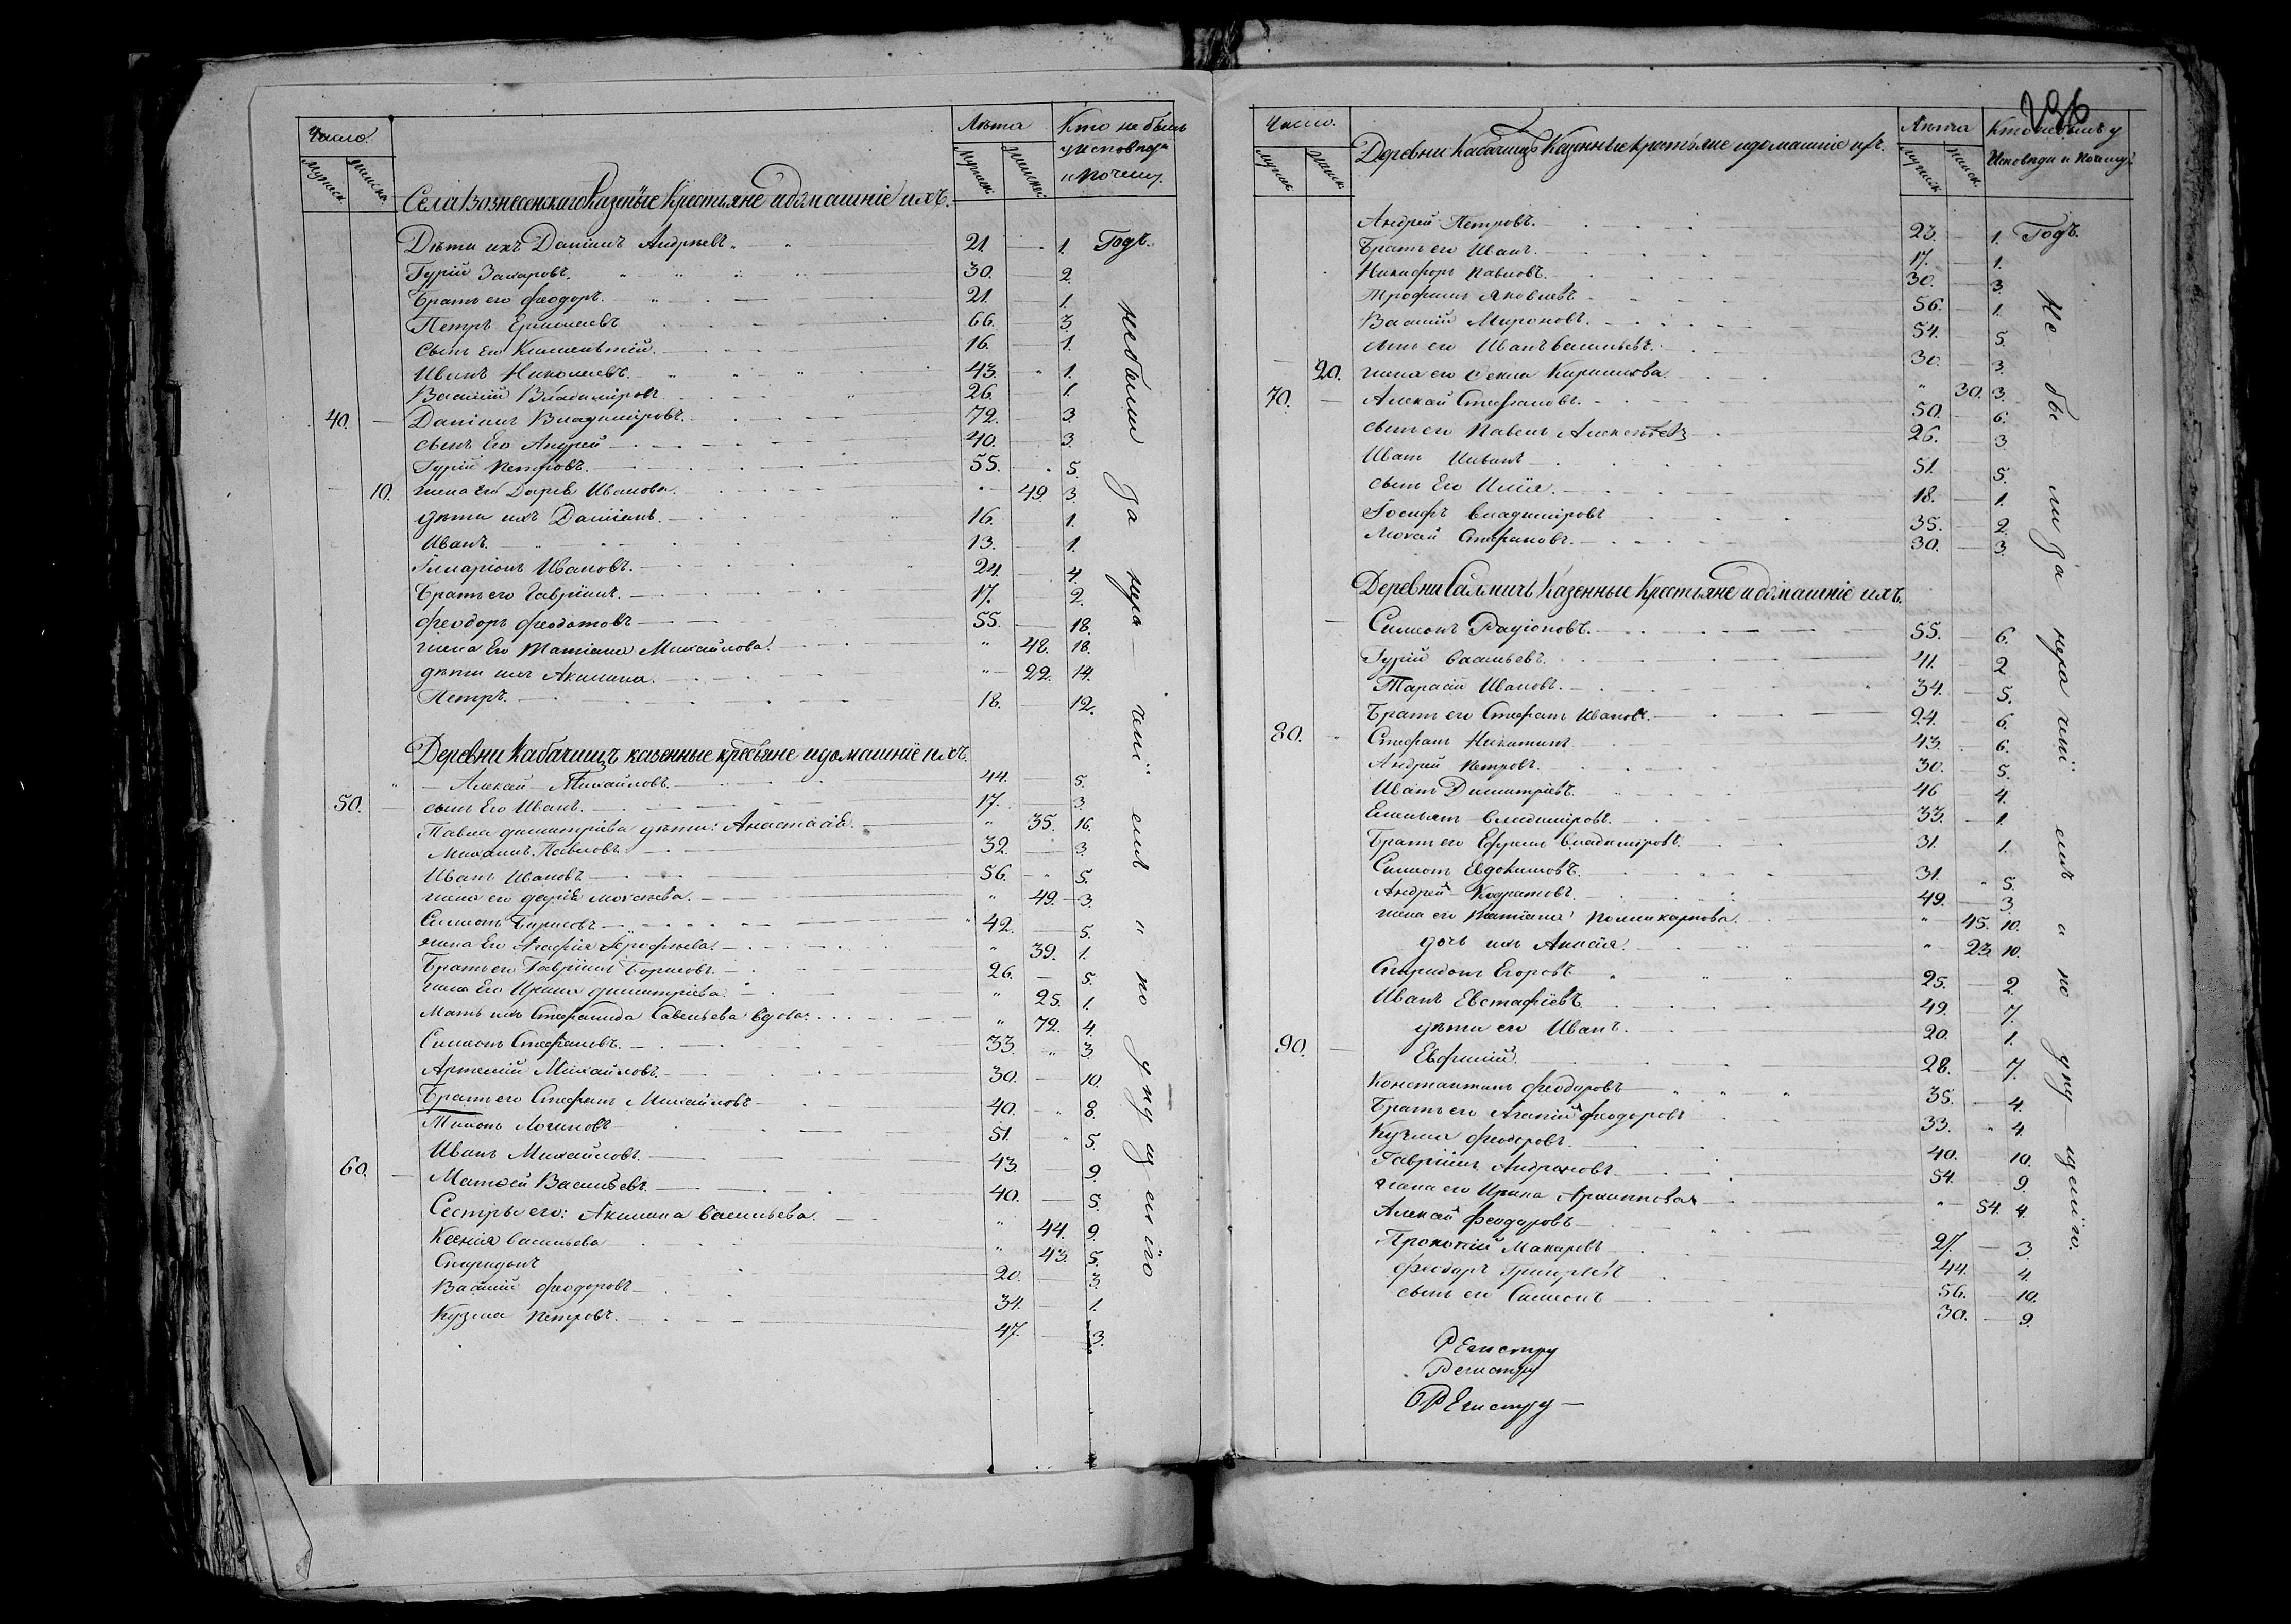 Число.
Мужеск.
Женска.
Лѣта
Мужеск.
Женска.
Кто не былъ
у исповѣди
и почему.
Села Вознесенскаго Казеные Крестьяне и домашніе ихъ.
Дѣти ихъ Даніилъ Андреевъ 21 1. Годъ.
Гурій Захаровъ. 30. 2.
Братъ его Феодоръ. 21. 1.
Петръ Ермолаевъ 66. 3.
сынъ Его Климентій. 16. 1.
Иванъ Николаевъ. 43. 1.
Василій Владиміровъ 26. 1.
40. Даніилъ Владиміровъ. 72. 3.
сынъ Его Андрей 40. 3.
Гурій Петровъ. 55. 5.
10. жена Его Дарья Иванова. 49. 3.
дѣти ихъ Даніилъ. 16. 1.
Иванъ. 13. 1.
Иларіонъ Ивановъ. 24. 4.
Братъ его Гавріилъ. 17. 2.
Феодоръ Феодотовъ 55. 18.
жена Его Татіана Михайлова. 48. 18.
дѣти ихъ Акилина. 22. 14.
Петръ. 18. 12.
Деревни Кабачищъ казенные кресьяне и домашніе ихъ.
Алексѣй Михайловъ. 44. 5.
50. сынъ Его Иванъ. 17. 3.
Павла Димитріева дѣти: Анастасія. 35. 16.
Михаилъ Павловъ 32. 3.
Иванъ Ивановъ. 56. 5.
жена его Дарія Моксеева. 49. 3.
Симеонъ Борисовъ 42. 5.
жена Его Агафія Ерофѣева. 39. 1.
Братъ его Гавріилъ Борисовъ. 26. 5.
жена Его Ирина Димитріева. 25. 1.
Мать ихъ Стефанида Савельева вдова. 72. 4.
Симеонъ Стефановъ. 33. 3.
Артемій Михайловъ. 30. 10.
Братъ его Стефанъ Михайловъ 40. 8.
Тихонъ Логиновъ 51. 5.
Иванъ Михайловъ. 43. 9.
60. Матвей Васильевъ. 40. 5.
Сестры его: Акилина Васильева. 44. 9.
Ксенія Васильева 43. 5.
Спиридонъ 20. 3.
Василій Феодоровъ 34. 1.
Кузма Петровъ. 47. 3.
не были за нерачениемъ и по упущению
Число.
Мужеск.
Женск.
Деревни Кабачищъ Казенные Крестьяне и домашніе ихъ.
Лѣта
Мужеск.
Женск.
Кто не былъ у
Исповѣди и почему.
Андрей Петровъ. 23. 1. Годъ.
Братъ его Иванъ. 17. 1.
Никифоръ Павловъ. 30. 3.
Трофимъ Яковлевъ 56. 1.
Василій Мироновъ. 54. 5.
сынъ его Иванъ Васильевъ. 30. 3.
20. жена его Текла Кирилова. 30. 3.
70. Алексѣй Стефановъ. 50. 6.
сынъ его Павелъ Алексѣевъ 26. 3
Иванъ 51. 5.
сынъ Его Илія. 18. 1.
Іосифъ Владиміровъ 35. 2.
Мокѣй Стефановъ. 30. 3.
Деревни Салмичъ Казенные Крестьяне и домашніе ихъ.
Симеонъ Радіоновъ. 55. 6.
Гурій Васильевъ. 41. 2
Тарасій Ивановъ. 34. 5.
Братъ его Стефанъ Ивановъ. 24. 6.
80. Стефанъ Никитинъ. 43. 6.
Андрей Петровъ. 30. 5.
Иванъ Димитріевъ. 46 4.
Емельянъ Владиміровъ. 33. 1.
Братъ его Ефремъ Владиміровъ. 31. 1.
Симеонъ Евдокимовъ. 31. 5.
Андрей Кодратовъ. 49. 3.
жена его Татіана Поликарпова. 45. 10.
дочь ихъ Аннсія. 23. 10.
Спиридонъ Егоровъ 25. 2.
Иванъ Евстафіевъ 49. 7.
дѣти его Иванъ. 20. 1.
90. Евфимій. 28. 7.
Константинъ Феодоровъ 35. 4.
Братъ его Агапій Феодоровъ 33. 4.
Кузма Феодоровъ. 40. 10.
Гавріилъ Андреновъ 54. 9.
жена его Ирина Архипповая 54. 4.
Алексѣй Феодоровъ 27. 3.
Прокопій Макаровъ 44. 4.
Феодоръ Григорьевъ 56. 10.
сынъ его Симеонъ 30. 9.
Не были за нерачениемъ и по упущению.
Регистру
Регистру
Регистру